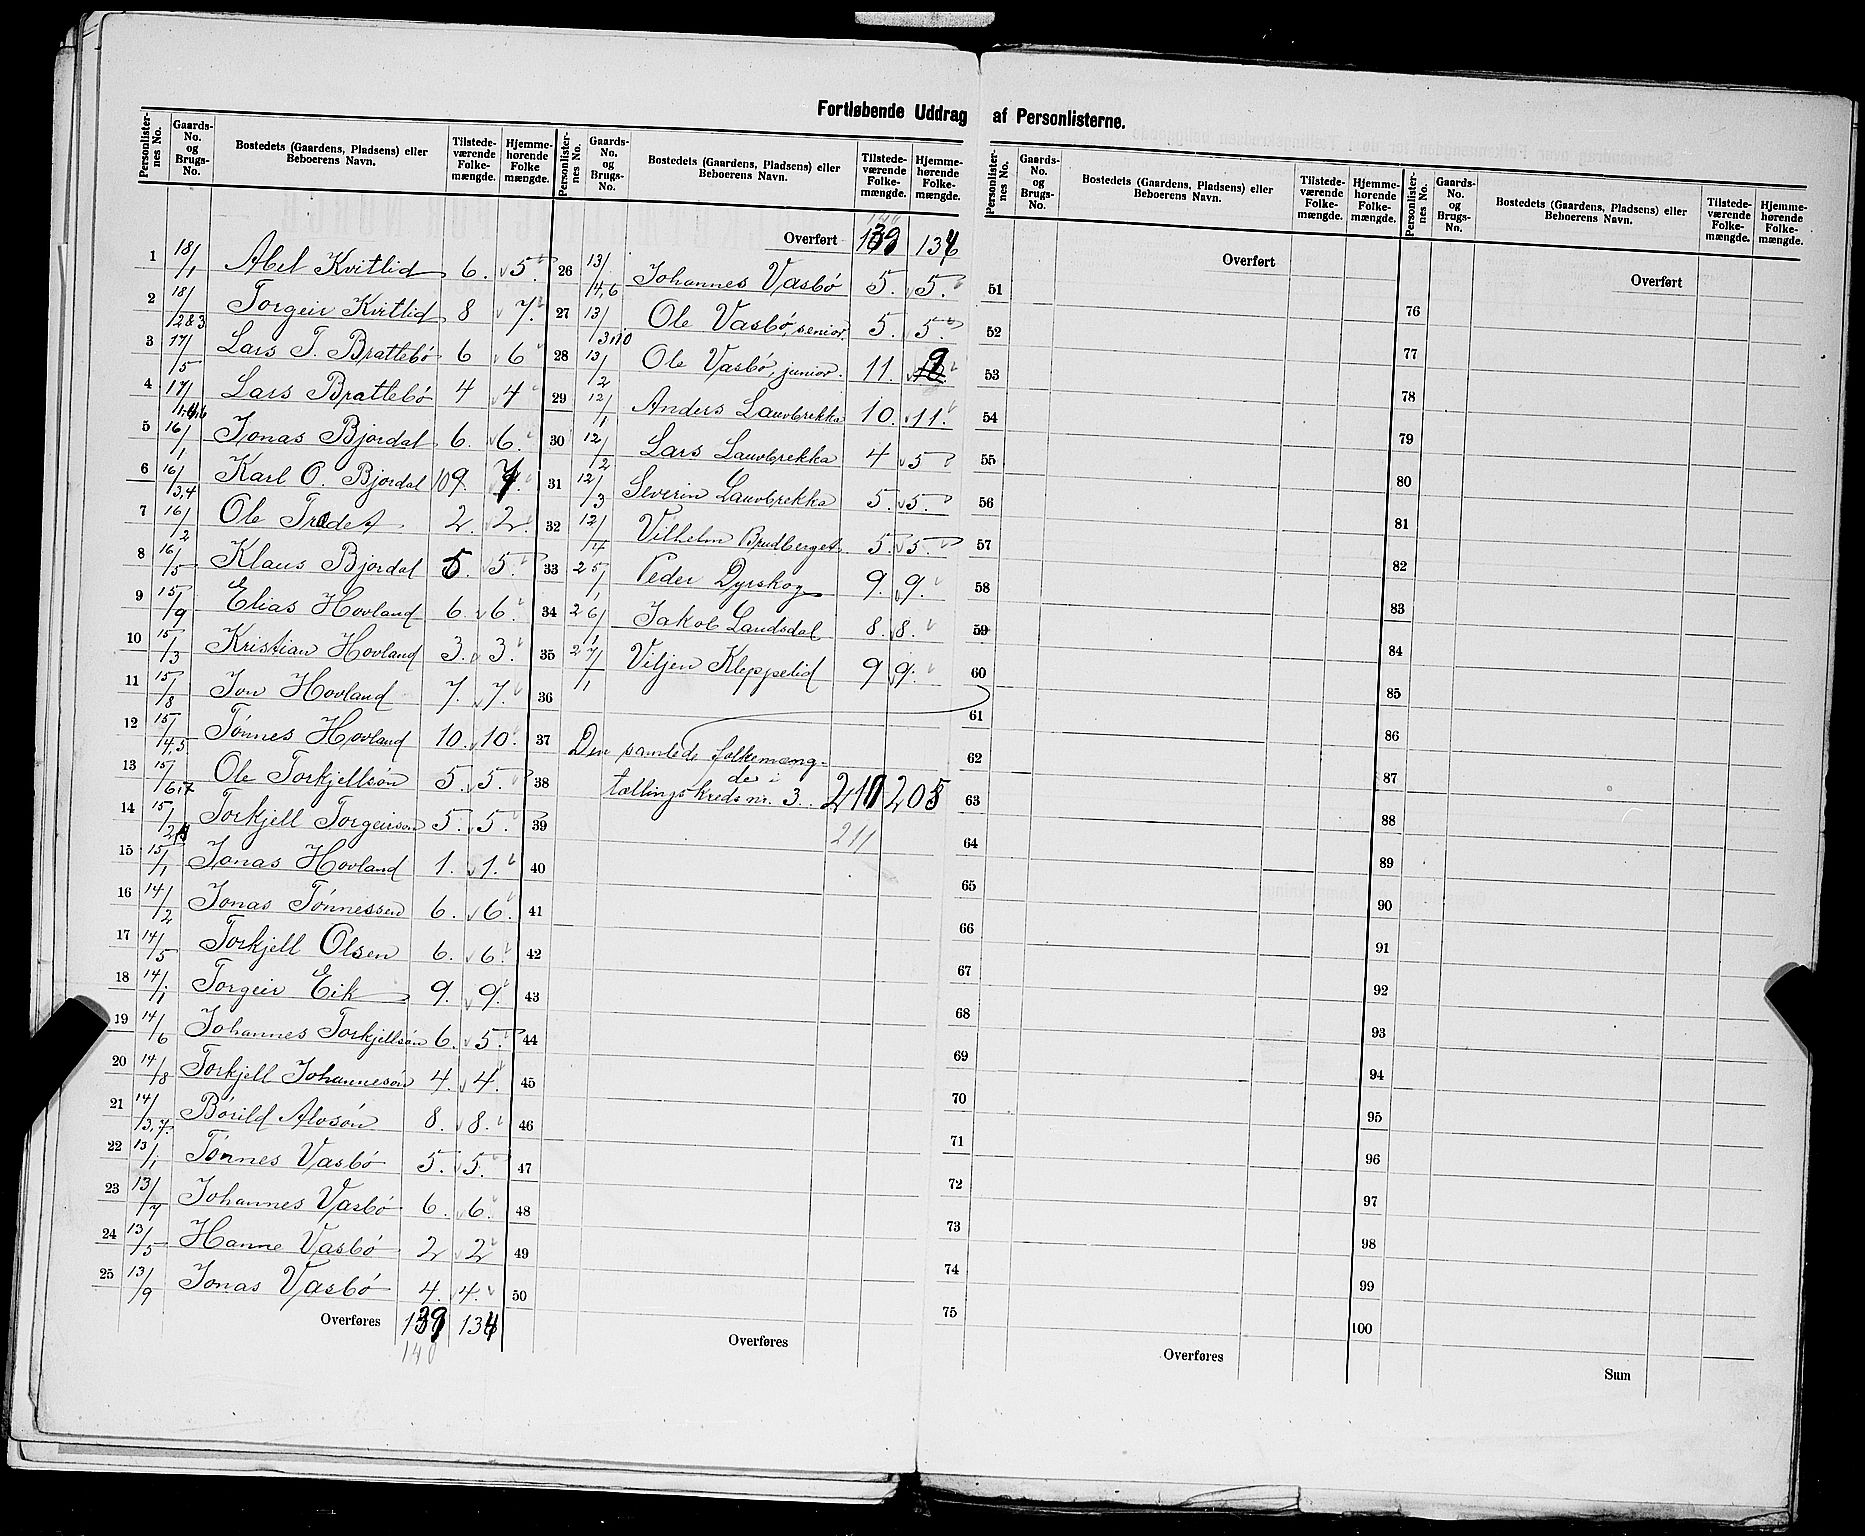 Fortløbende Uddrag af Personlisterne.
Personlister-nes No. Gaards-No. og Brugs-No. Bostedets (Gaardens, Pladsens) eller Beboerens Navn. Tilstede-værende Folke-mængde. Hjemme-hørende Folke mængde.
1 18/1 Abel Kvitlid 6. 5.
2 18/2&3 Torgeir Kvitlid 8 7.
3 17/5 Lars T. Brattebø 6 6
4 17/1,4,6 Lars Brattebø 4 4
5 16/1 Jonas Bjordal 6. 6.
6 16/3,4 Karl O. Bjordal 109. 7.
7 16/2 Ole Trædet 2. 2.
8 16/5 Klaus Bjordal 5. 5.
9 15/9 Elias Hovland 6. 6.
10 15/3 Kristian Hovland 3. 3.
11 15/8 Jon Hovland 7. 7.
12 15/4,5 Tønnes Hovland 10. 10.
13 15/6,7 Ole Torkjellsøn 5. 5.
14 15/2 Torkjell Torgeirson 5. 5.
15 15/1 Jonas Hovland 1. 1.
16 14/2 Jonas Tønnessen 6. 6.
17 14/5 Torkjell Olsen 6. 6.
18 14/1 Torgeir Eik 9. 9.
19 14/6 Johannes Torkjellsøn 6. 5.
20 14/8 Torkjell Johannesøn 4. 4.
21 14/3,7. Børild Alvsøn 8. 8.
22 13/1 Tønnes Vasbø 5. 5.
23 13/7 Johannes Vasbø 6. 6.
24 13/5 Hanne Vasbø 2 2
25 13/9 Jonas Vasbø 4. 4.
Overføres 139 134
140
Personlister-nes No. Gaards-No. og Brugs-No. Bostedets (Gaardens, Pladsens) eller Beboerens Navn. Tilstede-værende Folke-mængde. Hjemme-hørende Folke-mængde.
140
Overført 139 134
26 13/4,6 Johannes Vasbø 5. 5.
27 13/3,10 Ole Vasbø, senior. 5. 5.
28 13/2 Ole Vasbø, junior. 11. 9
29 12/1 Anders Lauvbrekka 10. 11.
30 12/2 Lars Lauvbrekka 4 5
31 12/3 Severin Lauvbrekka 5. 5.
32 12/4 Vilhelm Brudberget 5. 5.
33 25/1 Peder Dyrskog 9. 9.
34 26/1 Jakob Landsdal 8. 8.
35 27/1 Viljen Kleppelid 9 9.
36
37 Den samlede folkemæng-
de i
38 tællingskreds nr. 3. 210 205
39 211
40
41
42
43
44
45
46
47
48
49
50
Overføres
Personlister-nes No. Gaards-No. og Brugs-No. Bostedets (Gaardens, Pladsens) eller Beboerens Navn. Tilstede-værende Folke-mængde. Hjemme-hørende Folke-mængde.
Overført
51
52
53
54
55
56
57
58
59
60
61
62
63
64
65
66
67
68
69
70
71
72
73
74
75
Overføres
Personlister-nes No. Gaards-No. og Brugs-No. Bostedets (Gaardens, Pladsens) eller Beboerens Navn. Tilstede-værende Folke-mængde. Hjemme-hørende Folke-mængde.
Overført
76
77
78
79
80
81
82
83
84
85
86
87
88
89
90
91
92
93
94
95
96
97
98
99
100
Sum